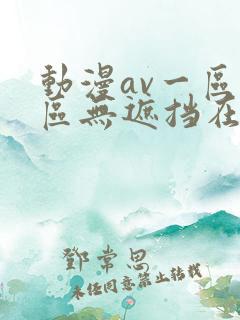 動漫av一區
區無遮挡在
鄧常思
未经同意禁止转载